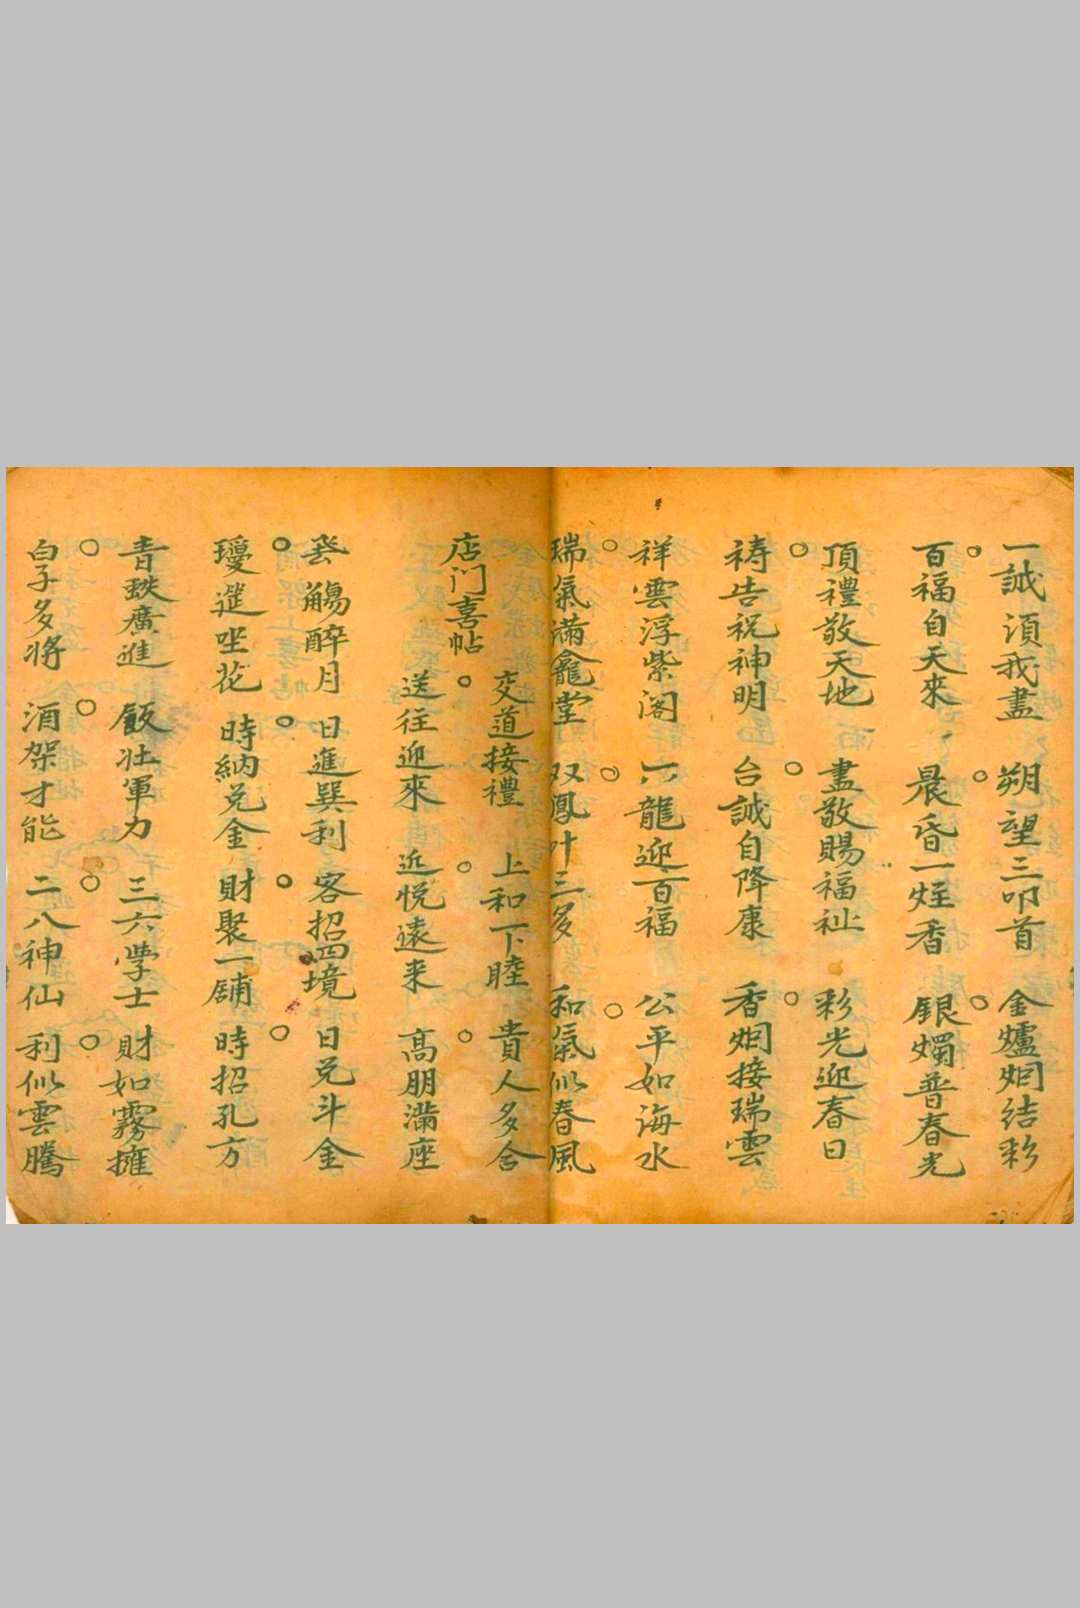 一誠須我盡 朔望三叩首 金爐烟结彩
百福自天來 晨昏一炷香 銀燭普春光
頂禮敬天地 盡敬賜福祉 彩光迎春日
祷告祝神明 台誠自降康 香烟接瑞雲
祥雲浮紫阁 六龍迎百福 公平如海水
瑞氣滿龕堂 双鳳叶三多 和氣似春風
交道接禮 上和下睦 貴人多舍
店门喜帖
送往迎來 近悦遠来 高朋滿座
觴醉月 日進巽利 客招四境 日兑斗金
瓊筵坐花 時納兑金 財聚一鋪 時招孔方
青蚨廣進 飯壮軍力 三六学士 財如霧擁
白子多将 酒架才能 二八神仙 利似雲騰